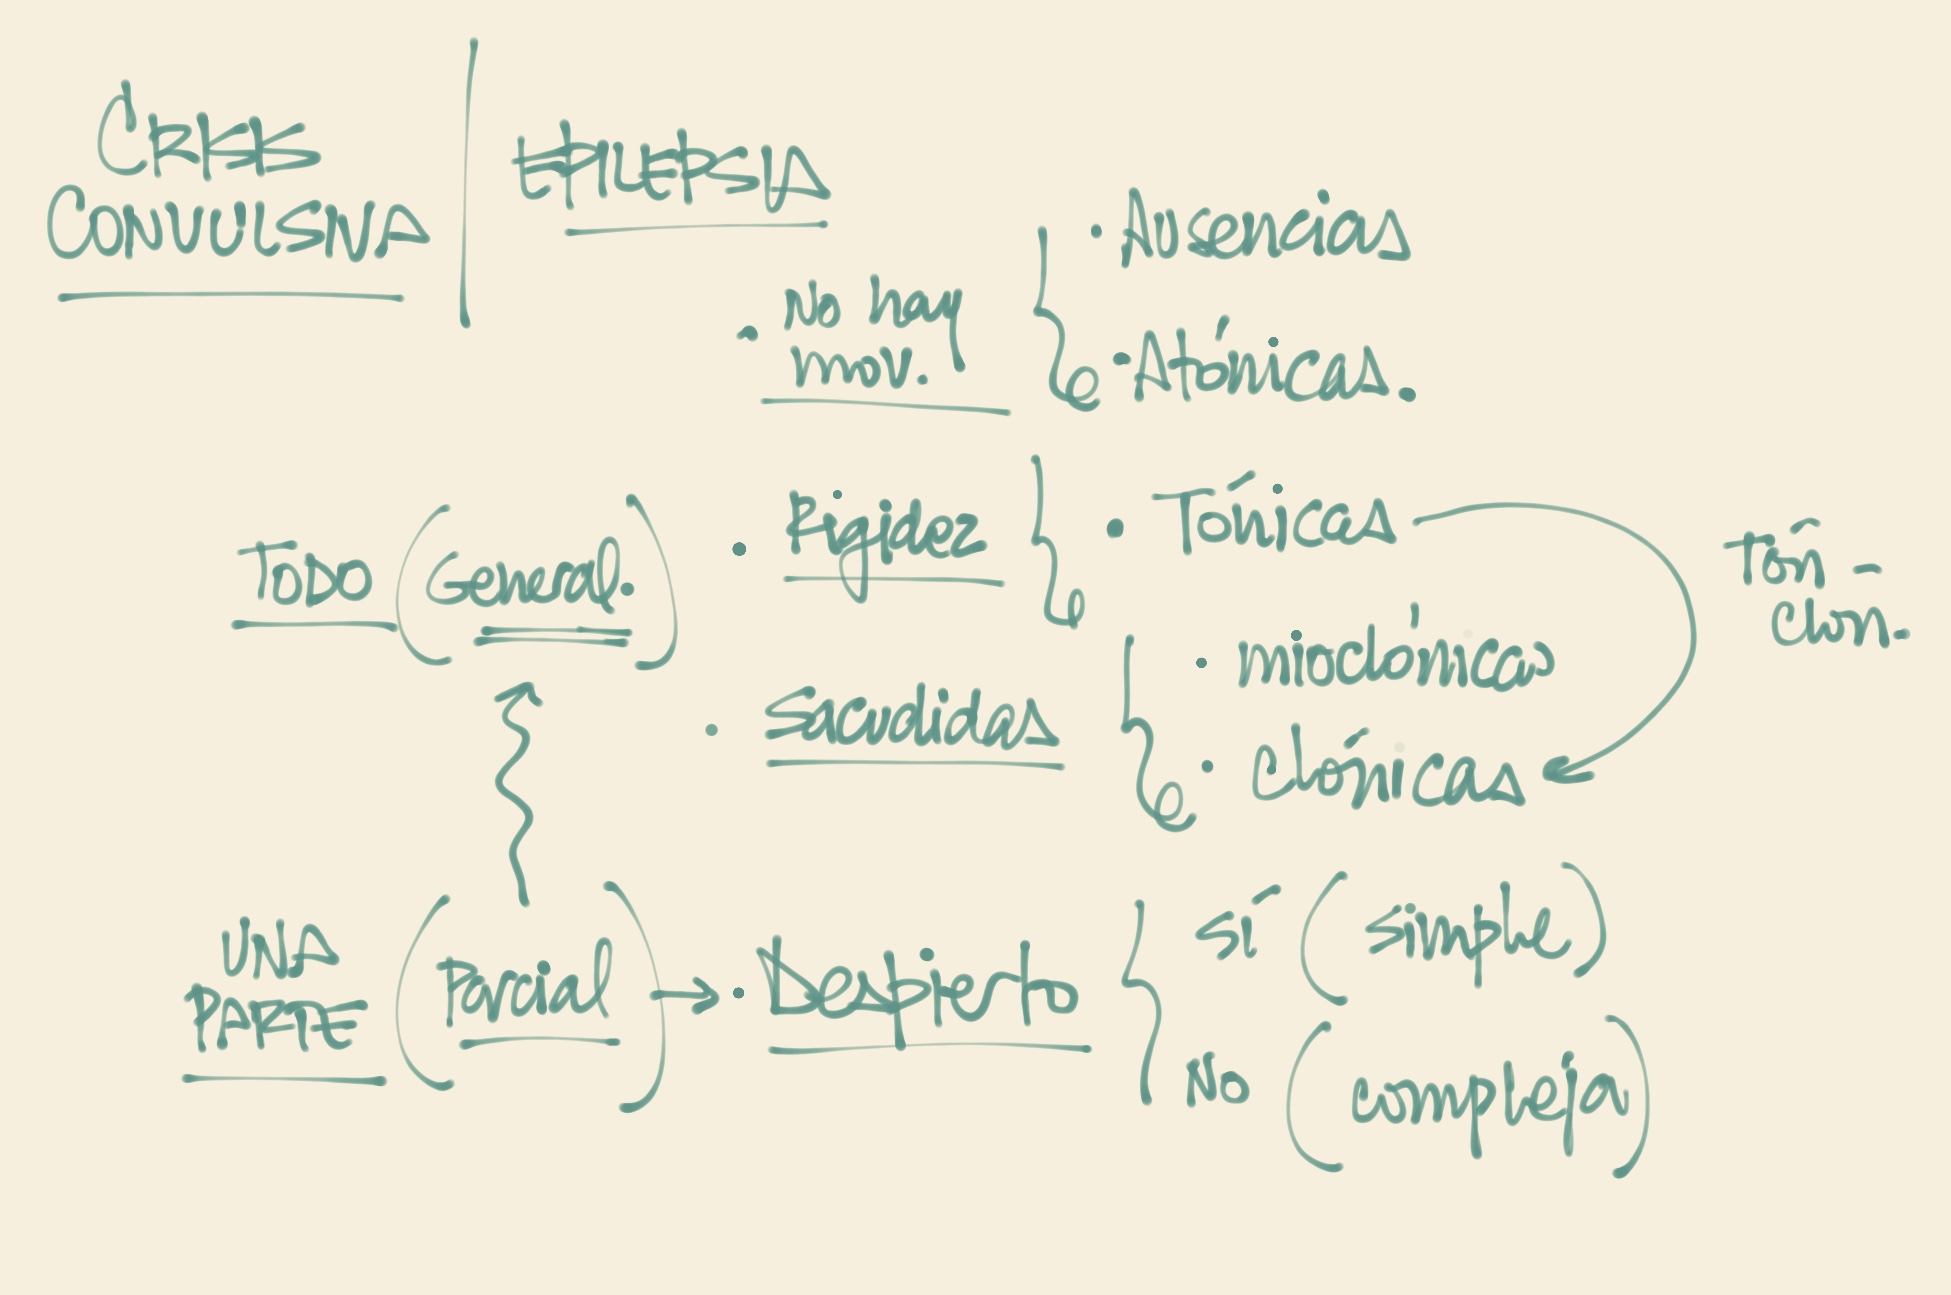 CRISIS
CONVULSIVA
EPILEPSIA
• No hay
mov.
• Ausencias
• Atónicas.
TODO (General.)
• Rigidez
• Tónicas
Tón -
Clon.
• Sacudidas
• mioclónicas
• Clónicas
UNA
PARTE
(Parcial)
• Despierto
SÍ (simple)
No (compleja)